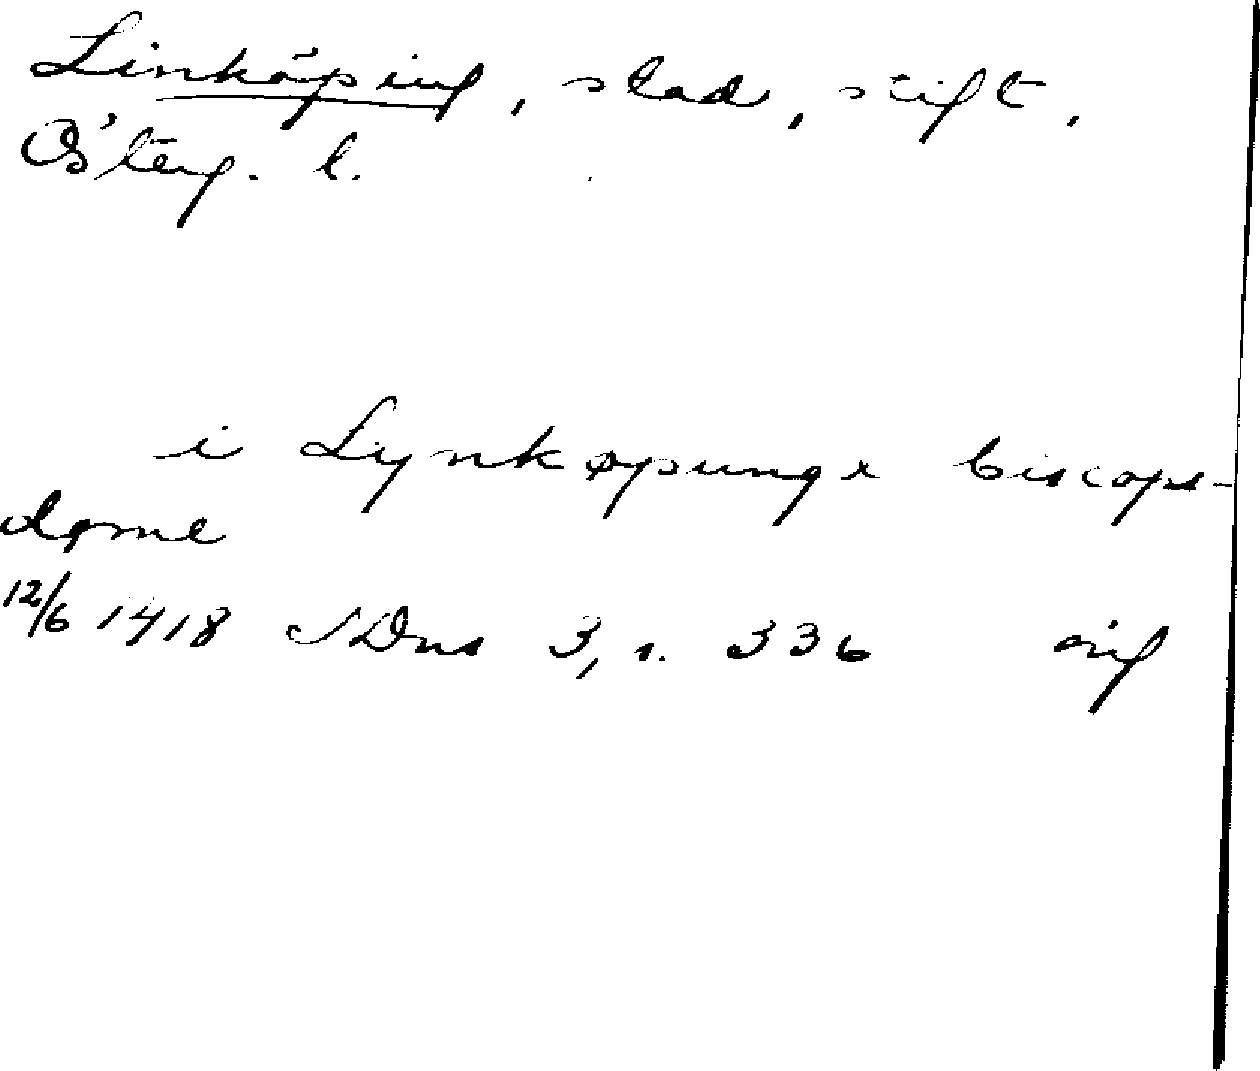 Linköping, stad, stift,
Österg. l.
i Lynkøpunge biscops-
døme
12/6 1418 SDns 3, s. 336 orig